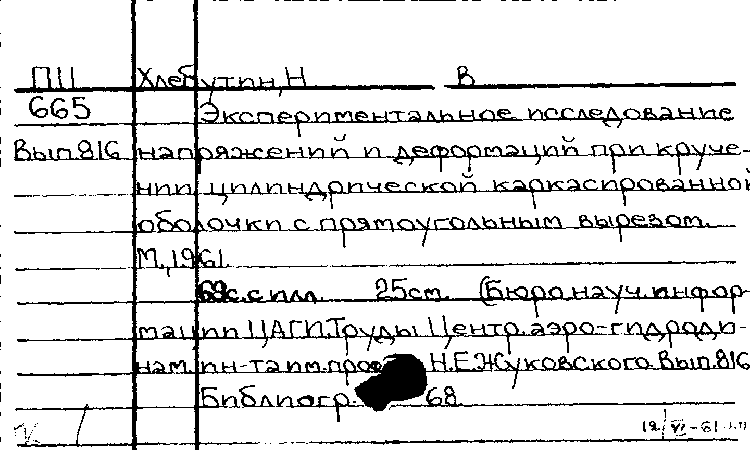 ПII Хлебутин, Н В
665 Экспериментальное исследование
Вып. 816 напряжений и деформаций при круче-
нии цилиндрической каркасированной
оболочки с прямоугольным вырезом.
М., 1961.
68с. с илл. 25см. (Бюро науч. инфор-
мации ЦАГИ. Труды Центр. аэро-гидроди-
нам. ин-та им. проф. Н.Е. Жуковского. Вып. 816
Библиогр. 68
12/VI-61